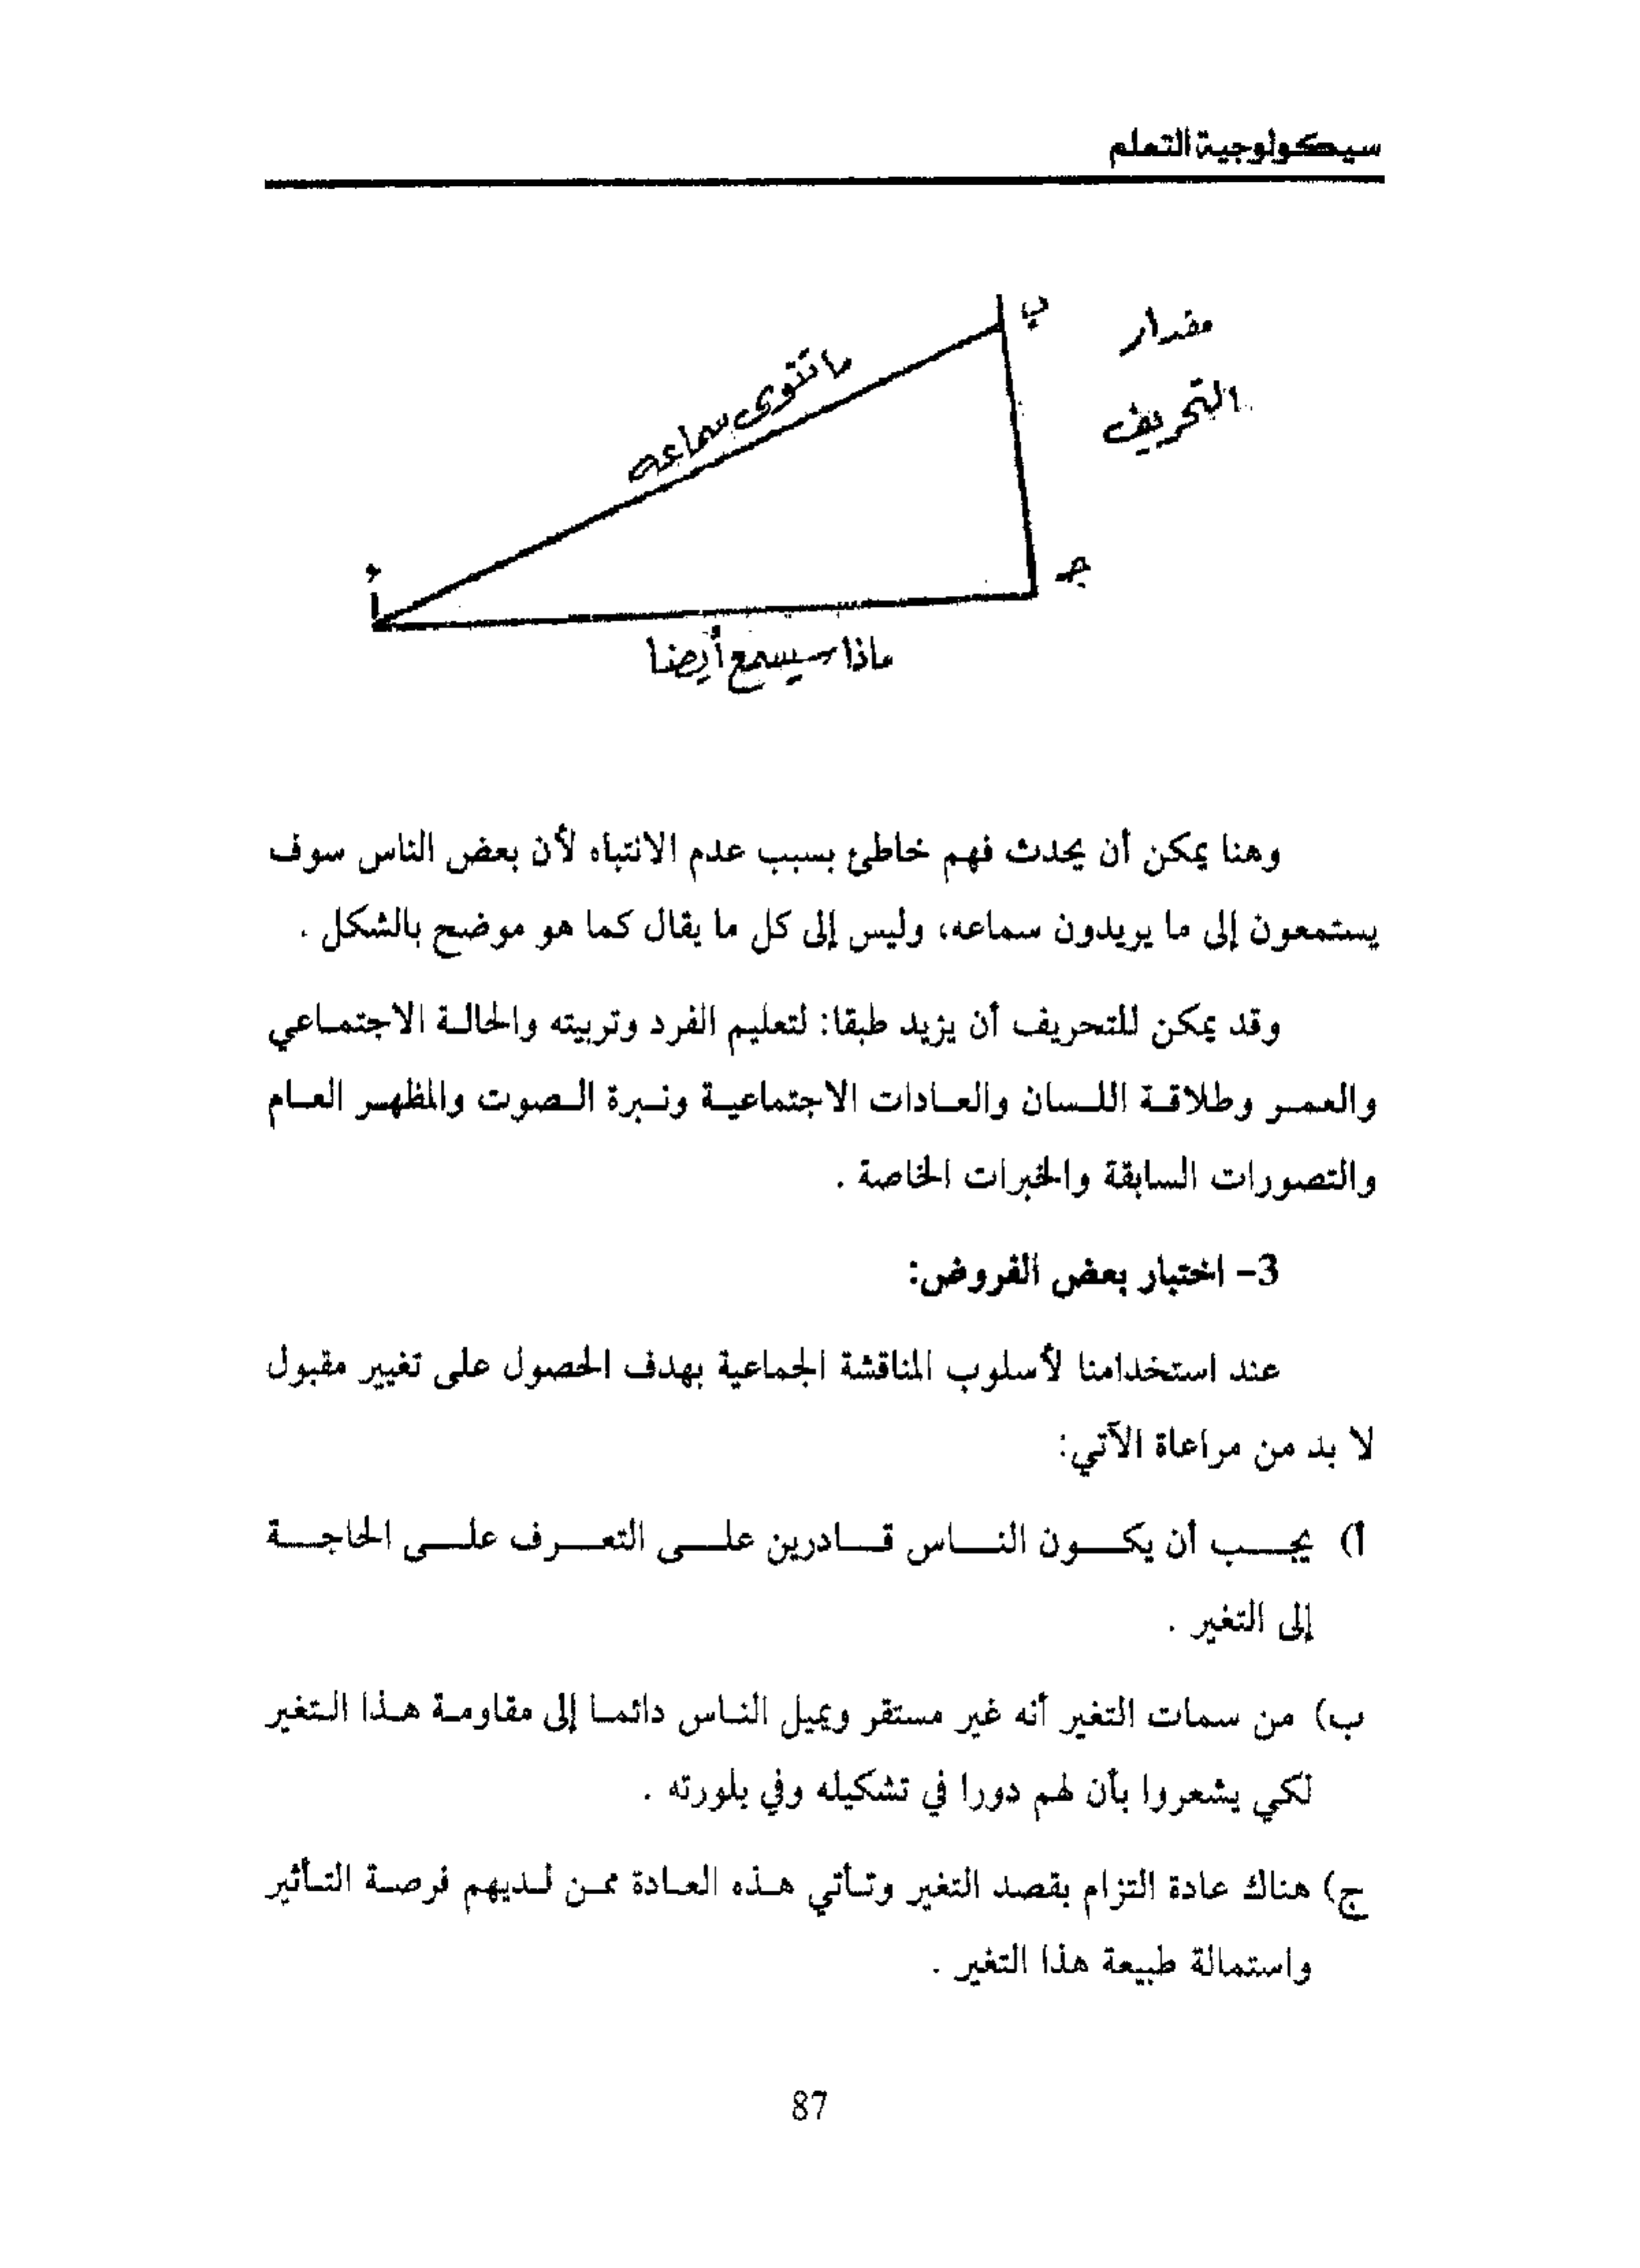 سيكولوجية التعلم
ب
مقدار
التحريف
ما تنوى سماعه
أ
جـ
ماذا سيسمع أيضا
وهنا يمكن أن يحدث فهم خاطئ بسبب عدم الانتباه لأن بعض الناس سوف
يستمعون إلى ما يريدون سماعه، وليس إلى كل ما يقال كما هو موضح بالشكل .
وقد يمكن للتحريف أن يزيد طبقا: لتعليم الفرد وتربيته والحالة الاجتماعي
والعمر وطلاقة اللسان والعادات الاجتماعية ونبرة الصوت والمظهر العام
والتصورات السابقة والخبرات الخاصة .
3- اختبار بعض الفروض:
عند استخدامنا لأسلوب المناقشة الجماعية بهدف الحصول على تغيير مقبول
لا بد من مراعاة الآتي:
أ) يجب أن يكون الناس قادرين على التعرف على الحاجة
إلى التغير .
ب) من سمات التغير أنه غير مستقر ويميل الناس دائما إلى مقاومة هذا التغير
لكي يشعروا بأن لهم دورا في تشكيله وفي بلورته .
ج) هناك عادة التزام بقصد التغير وتأتي هذه العادة ممن لديهم فرصة التأثير
واستمالة طبيعة هذا التغير .
87